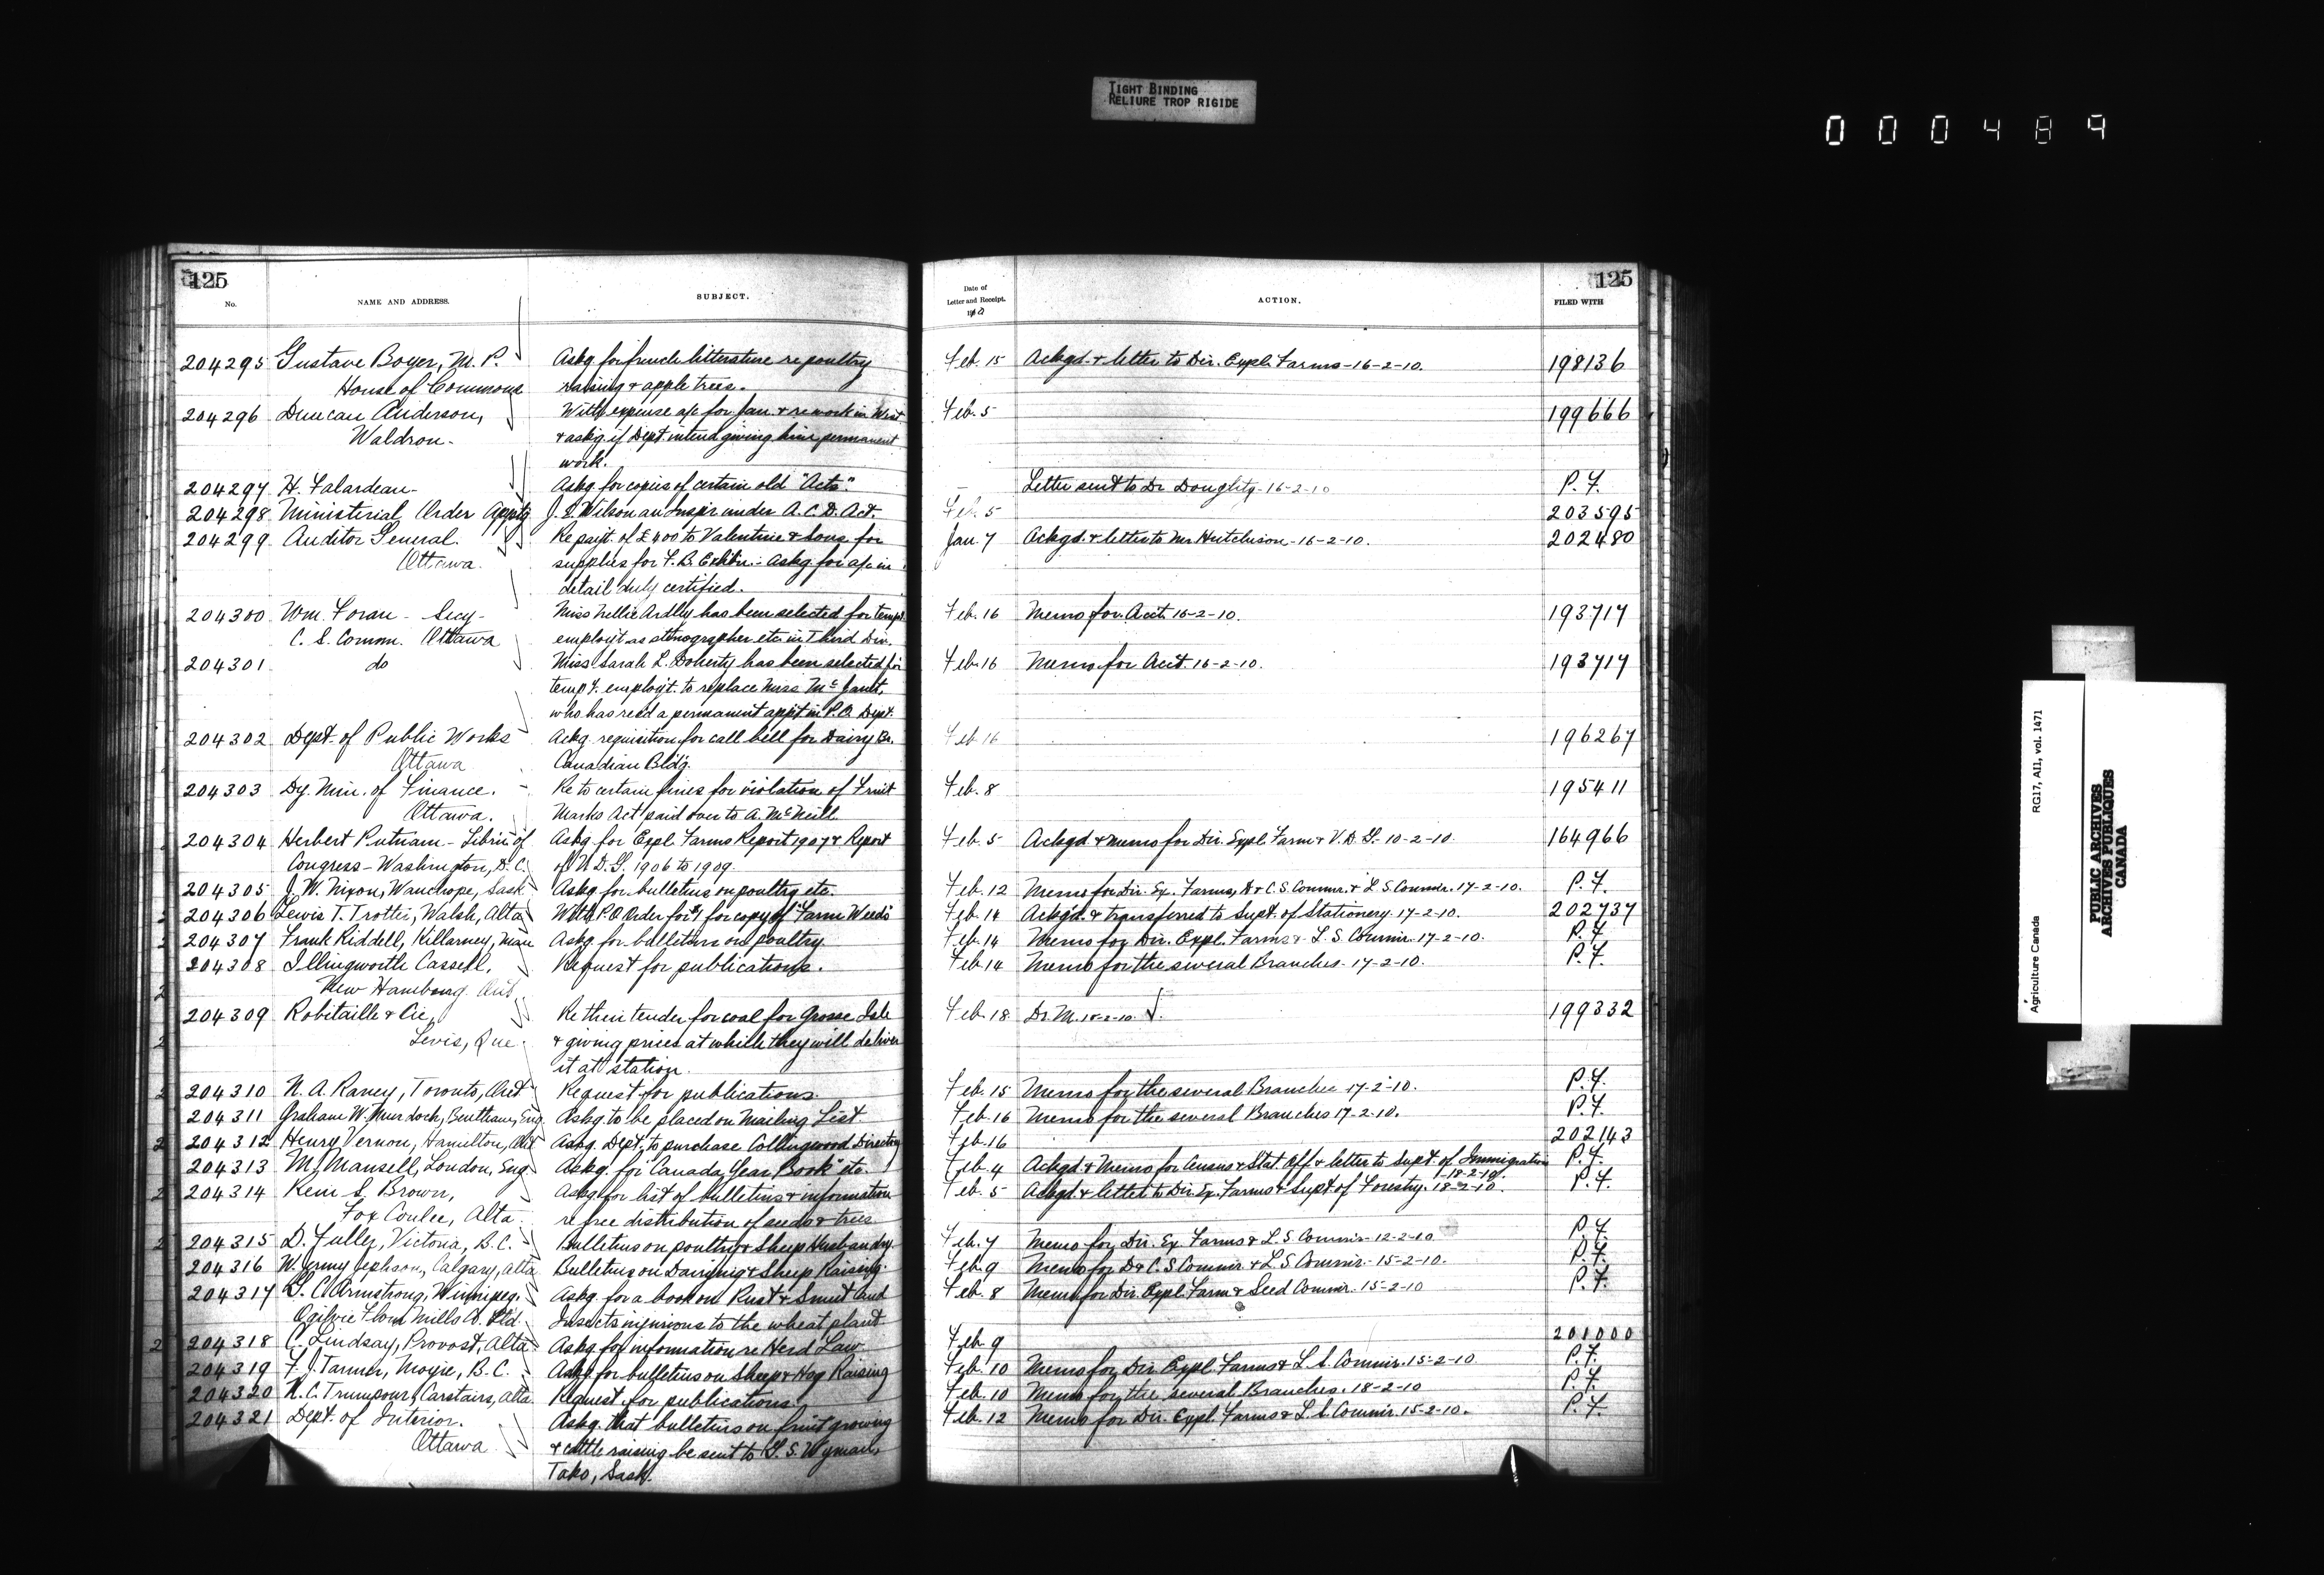 TIGHT BINDING
RELIURE TROP RIGIDE
000489
125
No. NAME AND ADDRESS. SUBJECT.
204295 Gustave Boyer, M.P. Askg. for french litterature re poultry
House of Commons raising & apple trees.
204296 Duncan Anderson, With expense a/c for Jan. & re work in West
Waldron. & askg. if Dept. intend giving him permanent
work.
204297 H. Falardeau. Askg. for copies of certain old "Acts".
204298 Ministerial Order Apptg J. S. Wilson an Inspr. under A. C. D. Act.
204299 Auditor General. Re payt. of £400 to Valentine & Sons for
Ottawa. supplies for F. B. Exhbn. - Askg. for a/c in
detail duly certified.
204300 Wm. Foran - Secy - Miss Nellie Ardlly has been selected for tempy
C. S. Comm. Ottawa employt as stenographer etc. in Third Div.
204301 do Miss Sarah L. Doherty has been selected for
tempy. employt. to replace Miss
who has recd a permanent appt. in P.O. Dept.
204302 Dept. of Public Works Ackg. requisition for call bell for Dairy Br.
Ottawa Canadian Bldg.
204303 Dy. Min. of Finance. Re to certain fines for violation of Fruit
Ottawa. Marks Act paid over to A. McNeill
204304 Herbert Putnam - Librn of Askg. for Expl. Farms Report 1907 & Report
Congress - Washington, D.C. of V. D. G. 1906 to 1909.
204305 J. W. Nixon, Wauchope, Sask Askg. for bulletins on poultry etc.
204306 Lewis T. Trotter, Walsh, Alta With P.O Order for $1 for copy of "Farm Weeds"
204307 Frank Riddell, Killarney, Man Askg. for bulletins on poultry
204308 Illingworth Cassell, Request for publications.
New Hamburg Ont.
204309 Robitaille & Cie, Re their tender for coal for Grosse Isle
Levis, Que. & giving prices at which they will deliver
it at station.
204310 N. A. Raney, Toronto, Ont Request for publications.
204311 Graham W. Murdoch, Bentham, Eng. Askg. to be placed on Mailing List.
204312 Henry Vernon, Hamilton, Ont Askg. Dept. to purchase Collingwood Directory
204313 M. Mansell, London, Eng. Askg. for "Canada Year Book" etc.
204314 Kem S. Brown, Askg. for list of bulletins & information
Fox Coulee, Alta. re free distribution of seeds & trees
204315 D. Fuller, Victoria, B.C. Bulletins on poultry & Sheep Husbandry
204316 W. Jephson, Calgary, Alta Bulletins on Dairying & Sheep Raising.
204317 S. C. Armstrong, Winnipeg. Askg. for a book on Rust & Smut and
Ogilvie Flour Mills Co. Ltd. Insects injurious to the wheat plant.
204318 C. Lindsay, Provost, Alta Askg. for information re Herd Law
204319 F. J. Tanner, Moyie, B.C. Askg. for bulletins on Sheep & Hog Raising
204320 R. C. Trumpour, Carstairs, Alta. Request for publications.
204321 Dept. of Interior. Askg. that bulletins on fruit growing
Ottawa & cattle raising be sent to G. S. Wyman,
Tako, Sask.
125
Date of Letter and Receipt. 1910 ACTION. FILED WITH
Feb. 15 Ackgd. & letter to Dir. Expl. Farms - 16-2-10. 198136
Feb. 5 199666
Letter sent to Dr Doughty - 16-2-10 P.F.
Feb 5 203595
Jan. 7 Ackgd. & letter to Mr. Hutchison - 16-2-10. 202480
Feb. 16 Memo for Acct. 16-2-10. 193717
Feb. 16 Memo for Acct. 16-2-10. 193717
Feb. 16 196267
Feb. 8 195411
Feb. 5 Ackgd. & memo for Dir. Expl. Farm & V. D. G. 10-2-10. 164966
Feb. 12 Memo for Dir. Ex. Farms, D & C. S Commr. & L. S. Commr. 17-2-10. P.F.
Feb. 14 Ackgd. & transferred to Supt. of Stationery. 17-2-10. 202737
Feb. 14 Memo for Dir. Expl. Farms & L. S. Commr. 17-2-10. P.F.
Feb. 14 Memo for the several Branches - 17-2-10. P.F.
Feb. 18 Dr M. 18-2-10. 199332
Feb. 15 Memo for the several Branches 17-2-10. P.F.
Feb. 16 Memo for the several Branches 17-2-10. P.F.
Feb. 16 202143
Feb. 4 Ackgd. & Memo for Census & Stat. Off. & letter to Supt. of Immigration P.F.
18-2-10.
Feb. 5 Ackgd. & letter to Dir. Ex. Farms & Supt. of Forestry. 18-2-10. P.F.
Feb. 7 Memo for Dir. Ex. Farms & L. S Commr. 12-2-10 P.F.
Feb. 9 Memo for D & C. S Commr & L. S Commr. - 15-2-10. P.F.
Feb. 8 Memo for Dir. Expl. Farm & Seed Commr. 15-2-10 P.F.
Feb. 9 201000
Feb. 10 Memo for Dir. Expl. Farms & L. S. Commr. 15-2-10. P.F.
Feb. 10 Memo for the several Branches. 18-2-10 P.F.
Feb. 12 Memo for Dir. Expl. Farms & L. S. Commr. 15-2-10. P.F.
Agriculture Canada RG17, A11, vol. 1471
PUBLIC ARCHIVES
ARCHIVES PUBLIQUES
CANADA